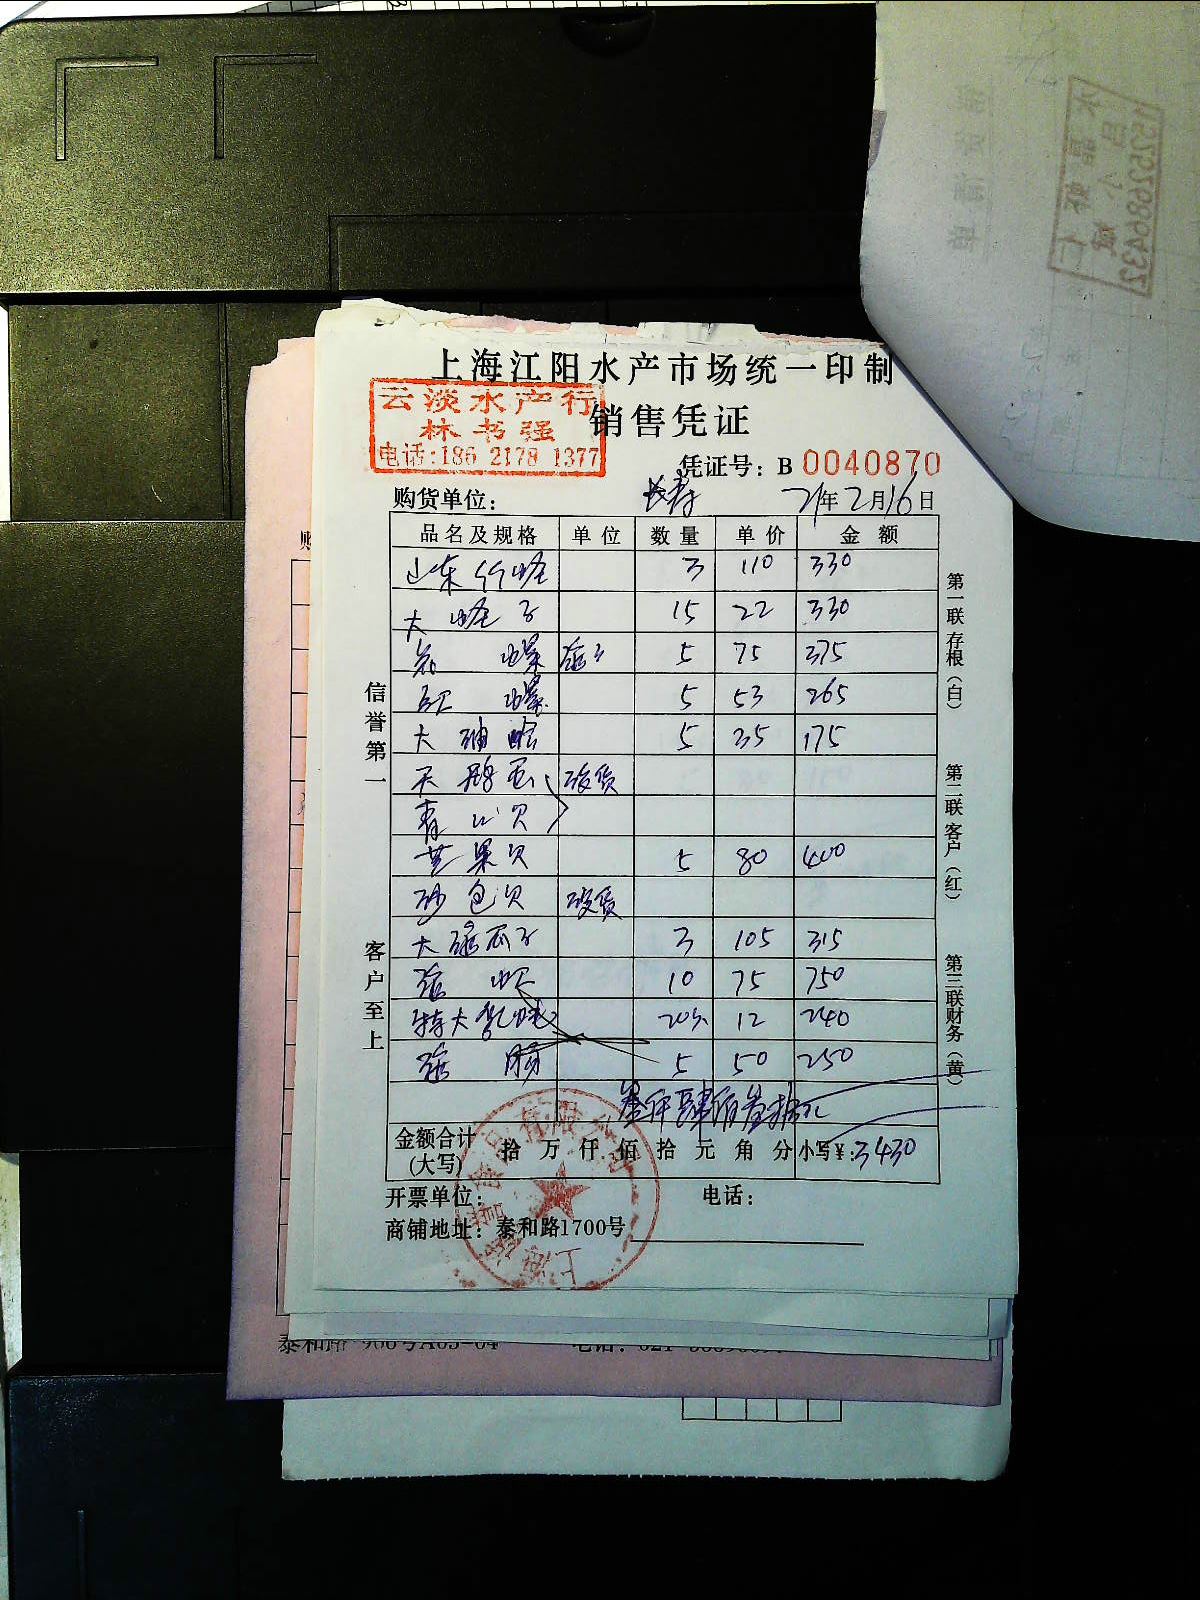 上海江阳水产市场统一印制
云淡水产行
林书强
电话:186 2178 1377
销售凭证
凭证号: B 0040870
购货单位: 长寿 21年2月16日
品名及规格 单位 数量 单价 金额
山东竹蛏 3 110 330
大蛏子 15 22 330
螺 5 75 375
螺 5 53 265
大 蛤 5 35 175
天鹅蛋 没货
青口贝
芒果贝 5 80 400
沙包贝 没货
大 瓜子 3 105 315
10 75 750
特大 20 12 240
肠 5 50 250
叁仟肆佰叁拾元
金额合计(大写) 拾 万 仟 佰 拾 元 角 分 小写¥: 3430
开票单位: 电话:
商铺地址: 泰和路1700号
信誉第一
客户至上
第一联存根(白)
第二联客户(红)
第三联财务(黄)
15252686432